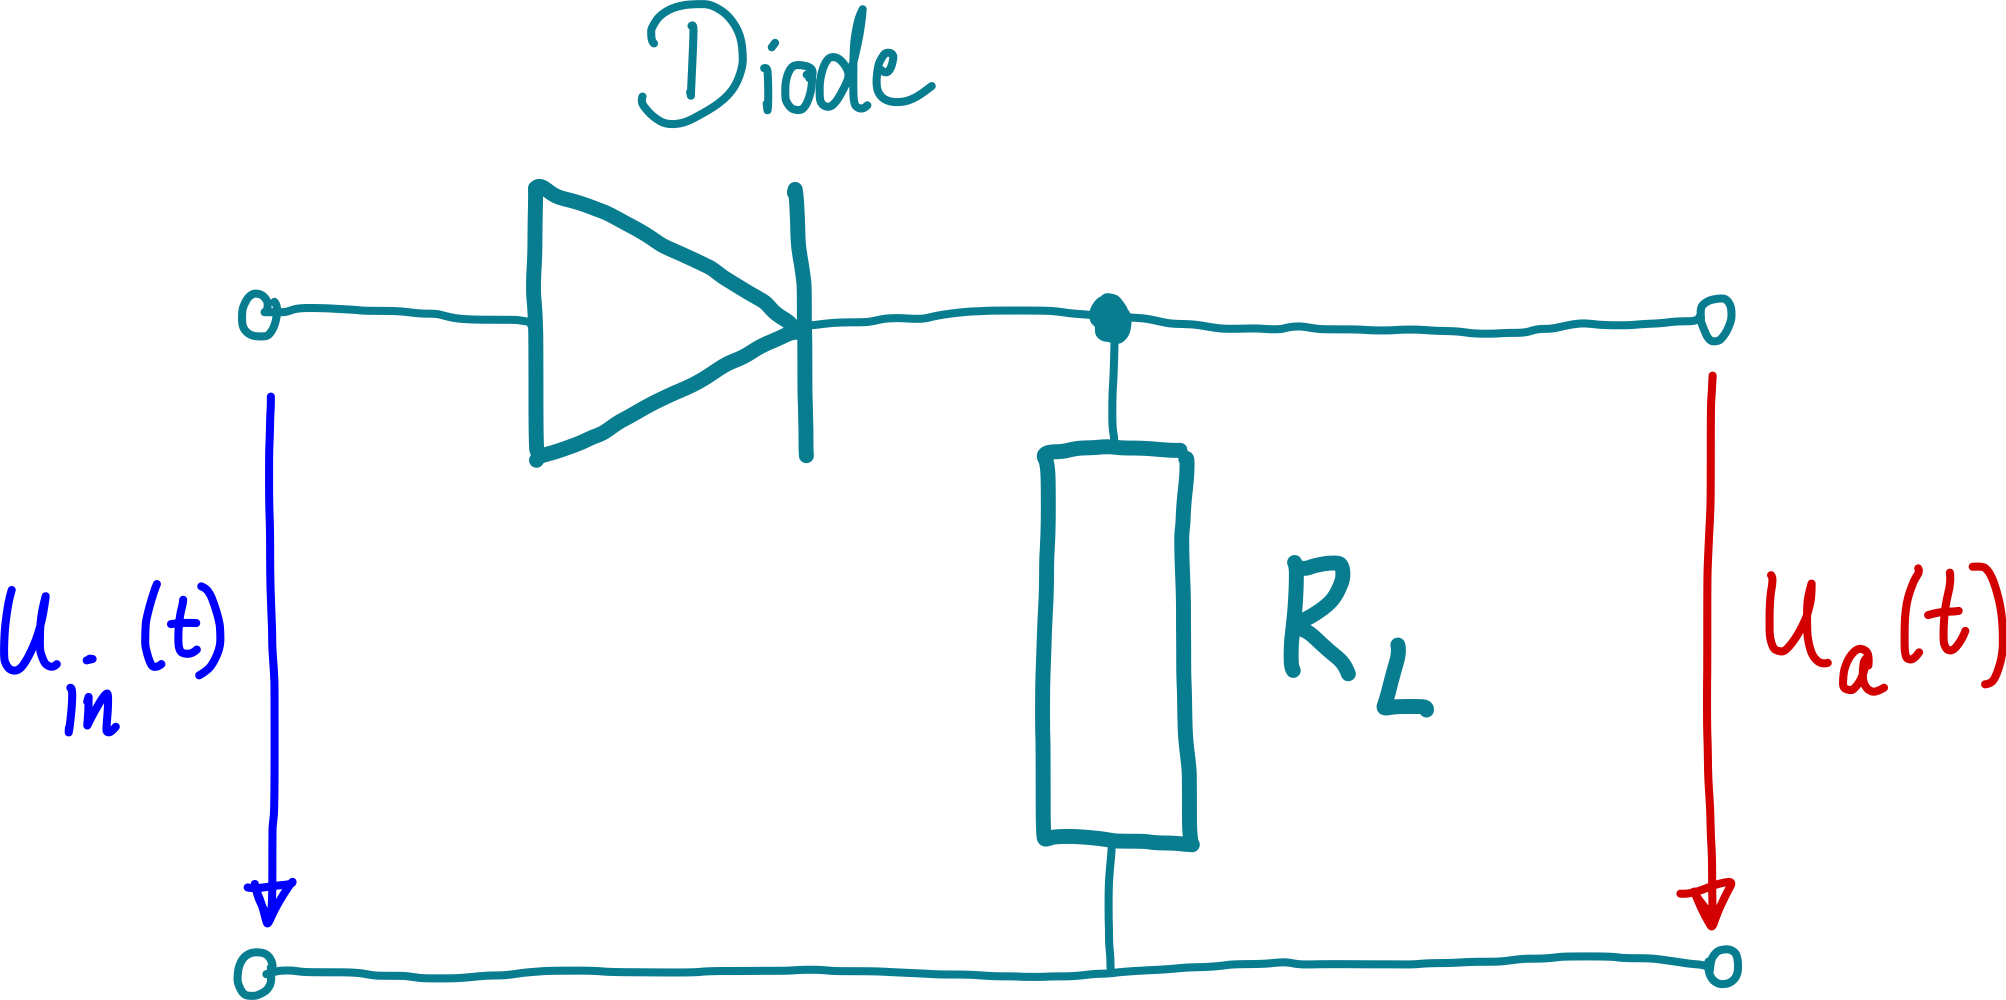 Diode
u_in (t)
R_L
u_a (t)